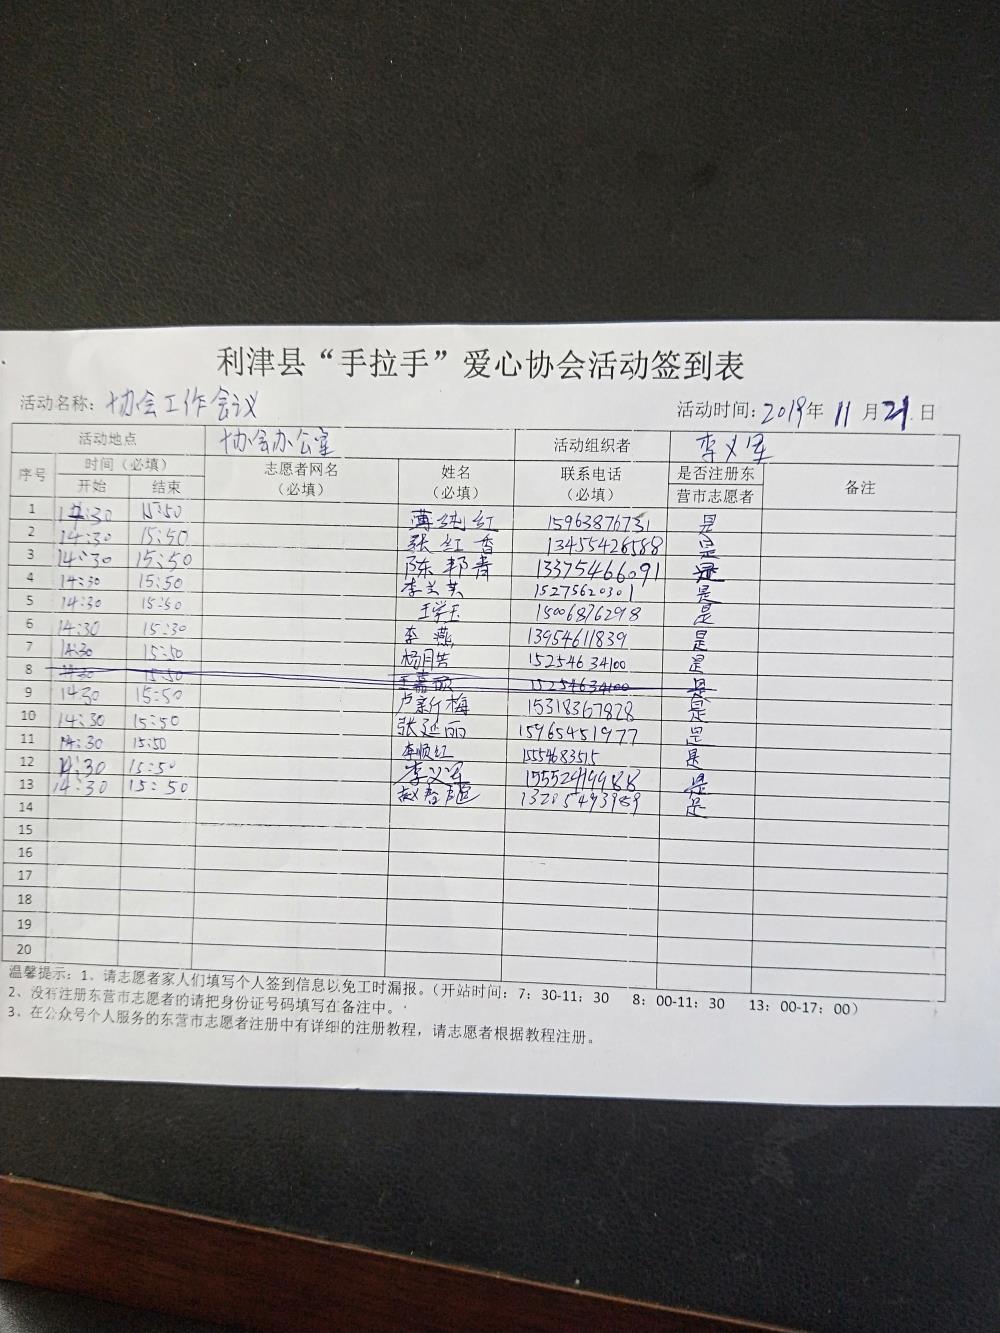 利津县“手拉手”爱心协会活动签到表
活动名称: 协会工作会议 活动时间: 2019年 11月21日
活动地点 协会办公室 活动组织者 李义军
序号 时间（必填） 志愿者网名（必填） 姓名（必填） 联系电话（必填） 是否注册东营市志愿者 备注
开始 结束
1 14:30 15:50 薄纯红 15963876731 是
2 14:30 15:50 张红香 13455426588 是
3 14:30 15:50 陈邦青 13375466091 是
4 14:30 15:50 李兰芳 15275620301 是
5 14:30 15:50 王学玉 15006876298 是
6 14:30 15:30 李燕 13954611839 是
7 14:30 15:50 杨月芳 15254634100 是
8 14:30 15:50 王嘉 15254634100 是
9 14:30 15:50 卢新梅 15318367828 是
10 14:30 15:50 张延丽 15965451977 是
11 14:30 15:50 李顺红 1554683515 是
12 14:30 15:50 李义军 15552419988 是
13 14:30 15:50 赵 13205493989 是
14
15
16
17
18
19
20
温馨提示: 1、请志愿者家人们填写个人签到信息以免工时漏报。（开站时间: 7: 30-11: 30 8: 00-11: 30 13: 00-17: 00）
2、没有注册东营市志愿者的请把身份证号码填写在备注中。
3、在公众号个人服务的东营市志愿者注册中有详细的注册教程，请志愿者根据教程注册。